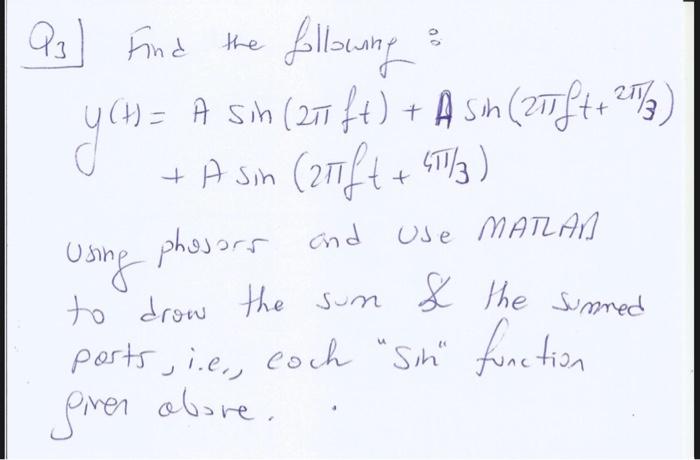 Q3] Find the following :
y(t) = A sin (2π ft) + A sin (2πft + 2π/3)
+ A sin (2πft + 4π/3)
using phasors and use MATLAB
to draw the sum & the summed
parts, i.e., each "sin" function
given above.